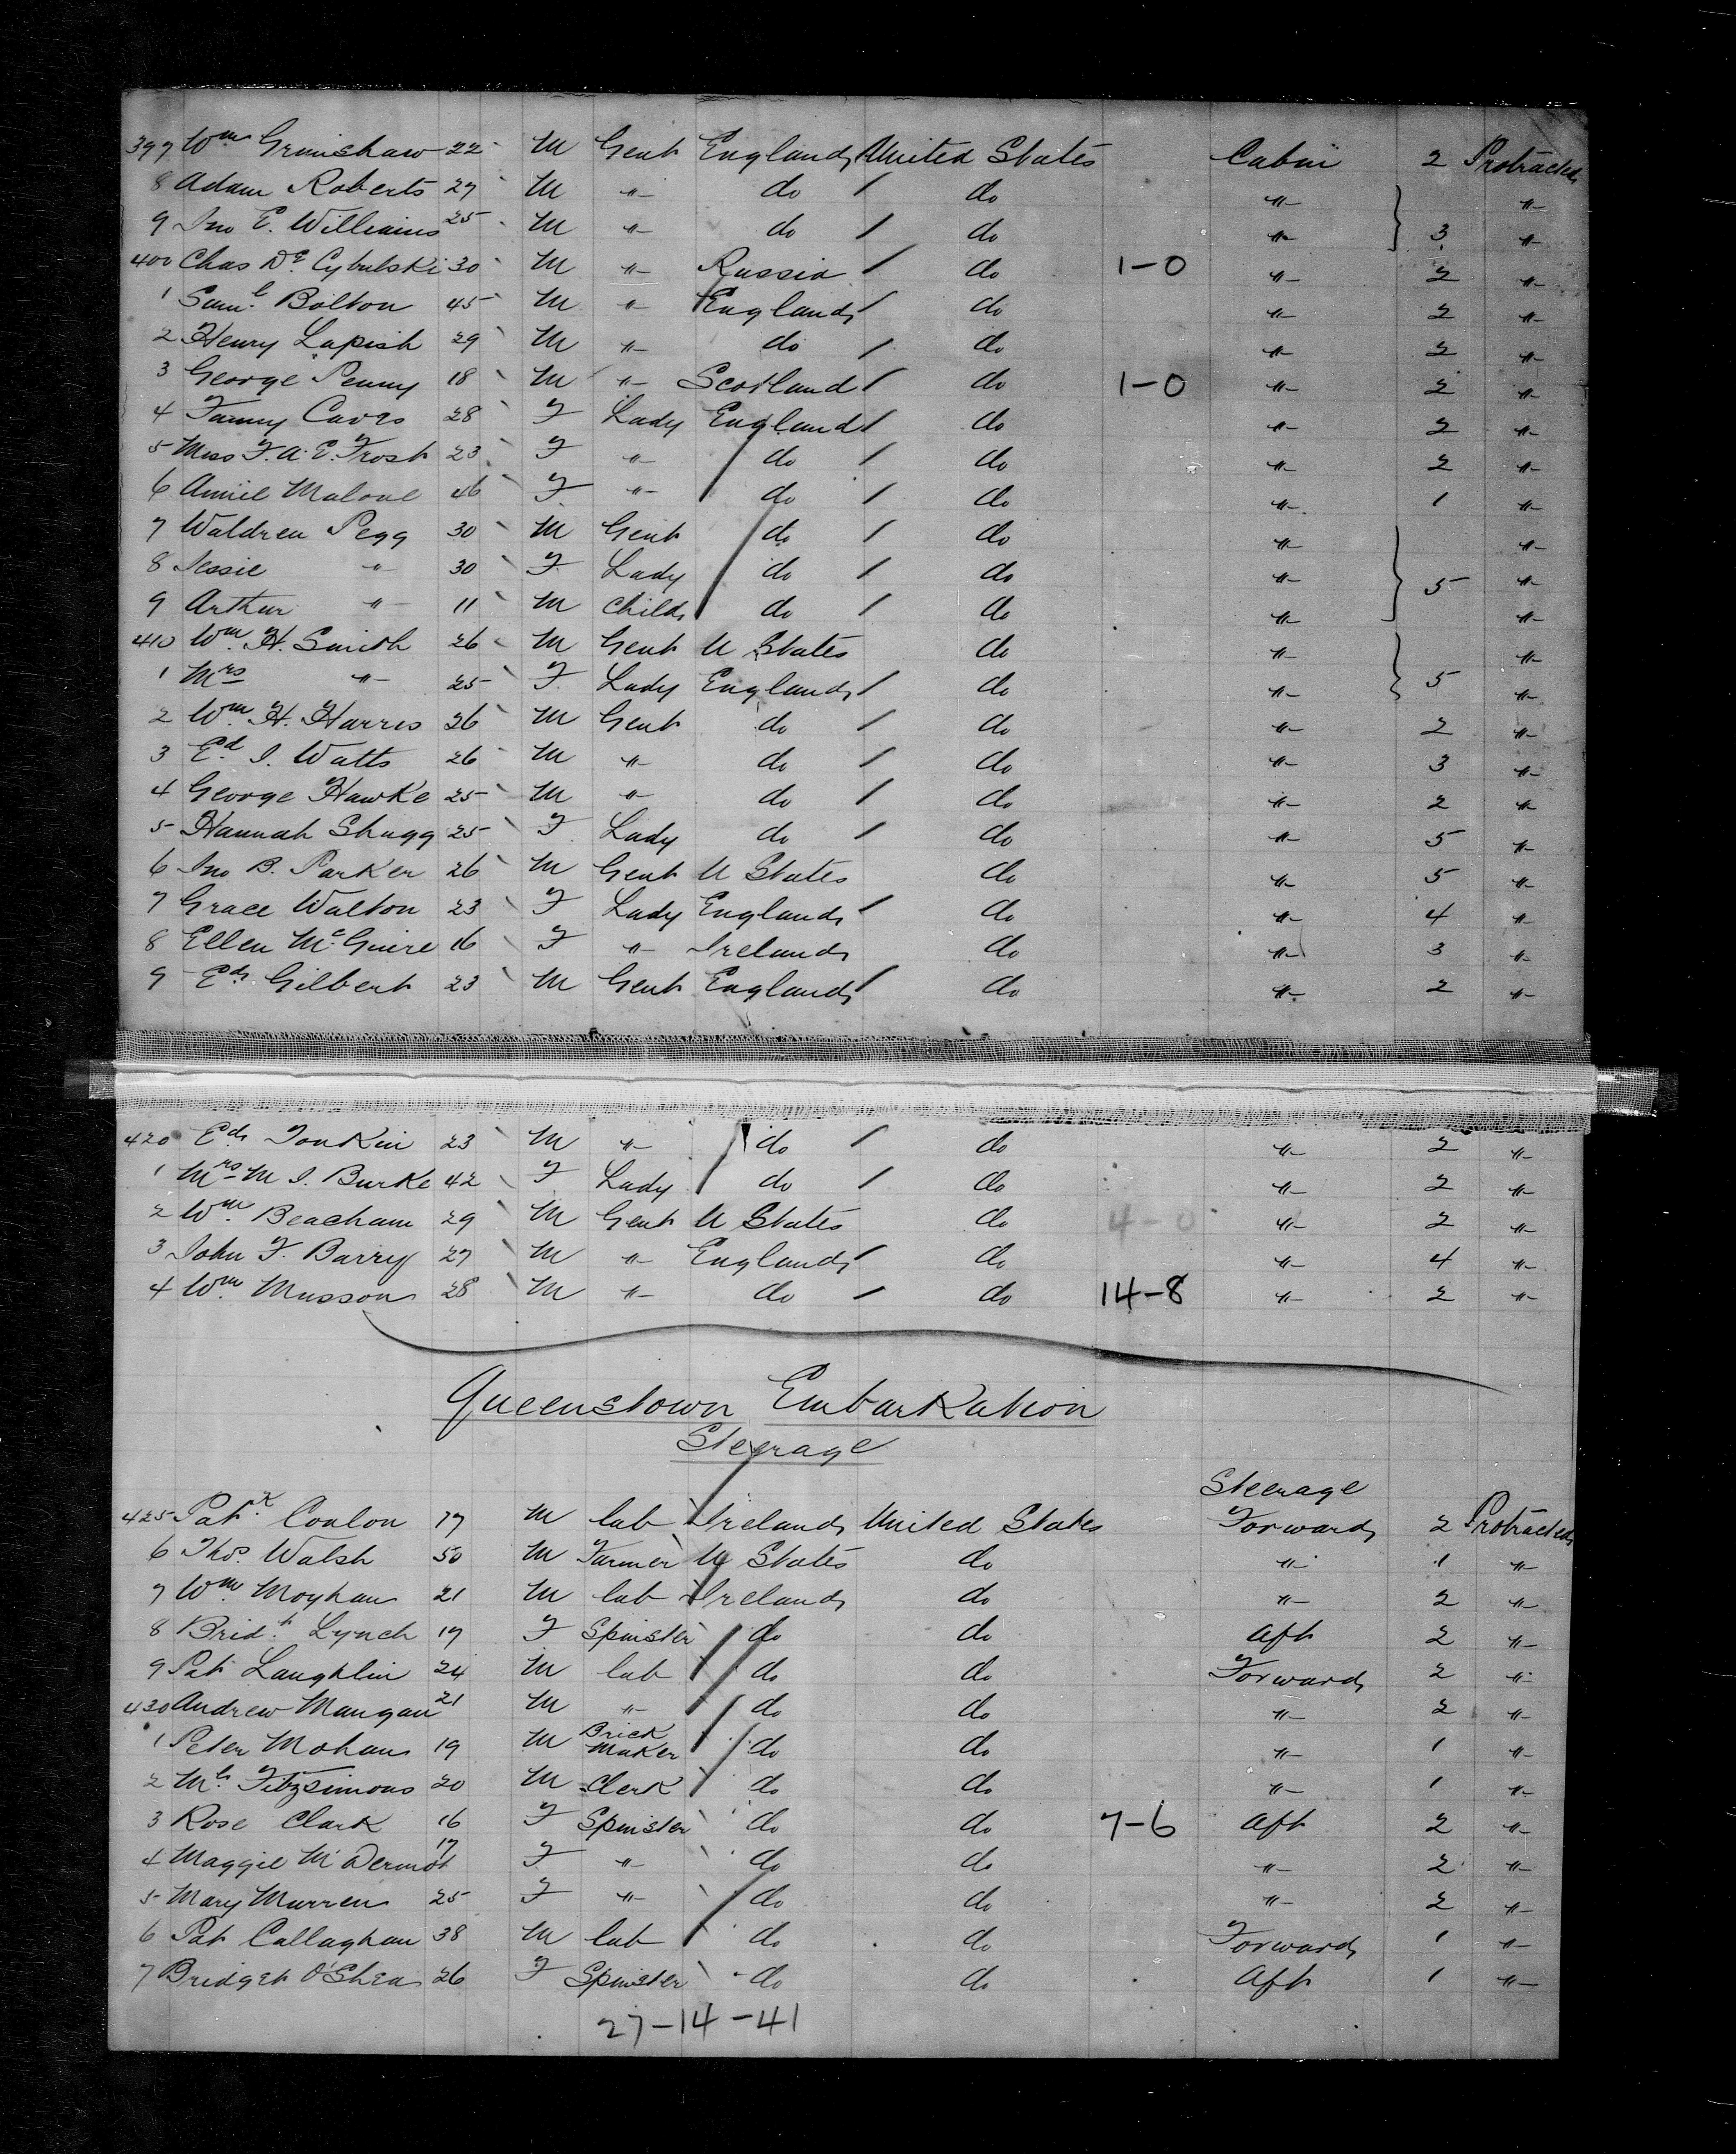 397 Wm Grimshaw 22 M Gent England United States Cabin 2 Protracted
8 Adam Roberts 27 M " do do " "
9 Jno E. Williams 25 M " do do " 3 "
400 Chas De Cybulski 30 M " Russia do 1-0 " 2 "
1 Saml Bolton 45 M " England do " 2 "
2 Henry Lapish 29 M " do do " 2 "
3 George Penny 18 M " Scotland do 1-0 " 2 "
4 Fanny Caves 28 F Lady England do " 2 "
5 Miss F. A. E. Frost 23 F " do do " 2 "
6 Annie Malone 46 F " do do " 1 "
7 Waldren Pegg 30 M Gent do do " "
8 Jessie " 30 F Lady do do " 5 "
9 Arthur " 11 M Child do do " "
410 Wm H. Smith 26 M Gent U States do " "
1 Mrs " 25 F Lady England do " 5 "
2 Wm H. Harris 26 M Gent do do " 2 "
3 Ed J. Watts 26 M " do do " 3 "
4 George Hawke 25 M " do do " 2 "
5 Hannah Shugg 25 F Lady do do " 5 "
6 Jno B. Parker 26 M Gent U States do " 5 "
7 Grace Walton 23 F Lady England do " 4 "
8 Ellen McGuire 16 F " Ireland do " 3 "
9 Ed Gilbert 23 M Gent England do " 2 "
420 Ed Tonkin 23 M " do do " 2 "
1 Mrs M J. Burke 42 F Lady do do " 2 "
2 Wm Beacham 29 M Gent U States do 4-0 " 2 "
3 John F. Barry 27 M " England do " 4 "
4 Wm Musson 28 M " do do 14-8 " 2 "
Queenstown Embarkation
Steerage
Steerage
425 Patk Conlon 17 M lab Ireland United States Forward 2 Protracted
6 Thos Walsh 50 M Farmer U States do " 1 "
7 Wm Moyhan 21 M lab Ireland do " 2 "
8 Bridt Lynch 17 F Spinster do do Aft 2 "
9 Pat Laughlin 24 M lab do do Forward 2 "
430 Andrew Mangan 21 M " do do " 2 "
1 Peter Mohan 19 M Brick Maker do do " 1 "
2 Ml Fitzsimons 20 M Clerk do do " 1 "
3 Rose Clark 16 F Spinster do do 7-6 Aft 2 "
4 Maggie McDermot 17 F " do do " 2 "
5 Mary Murren 25 F " do do " 2 "
6 Pat Callaghan 38 M lab do do Forward 1 "
7 Bridget O'Shea 26 F Spinster do do Aft 1 "
27-14-41